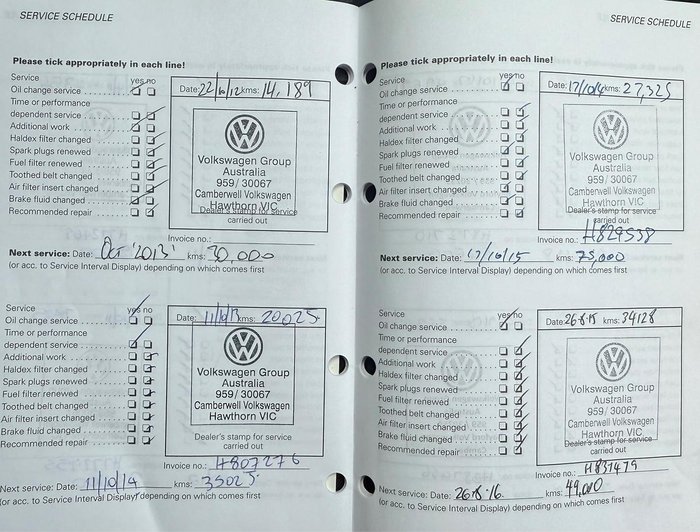 SERVICE SCHEDULE
Please tick appropriately in each line!
Service yes no
Oil change service
Time or performance
dependent service
Additional work
Haldex filter changed
Spark plugs renewed
Fuel filter renewed
Toothed belt changed
Air filter insert changed
Brake fluid changed
Recommended repair
Date: 22/10/12 kms: 14,189
Volkswagen Group
Australia
959 / 30067
Camberwell Volkswagen
Hawthorn VIC
Dealer's stamp for service
carried out
Invoice no.:
Next service: Date: Oct '2013' kms: 30,000
(or acc. to Service Interval Display) depending on which comes first
Service yes no
Oil change service
Time or performance
dependent service
Additional work
Haldex filter changed
Spark plugs renewed
Fuel filter renewed
Toothed belt changed
Air filter insert changed
Brake fluid changed
Recommended repair
Date: 11/10/13 kms: 20025
Volkswagen Group
Australia
959 / 30067
Camberwell Volkswagen
Hawthorn VIC
Dealer's stamp for service
carried out
Invoice no.: H807276
Next service: Date: 11/10/14 kms: 35025
(or acc. to Service Interval Display) depending on which comes first
SERVICE SCHEDULE
Please tick appropriately in each line!
Service yes no
Oil change service
Time or performance
dependent service
Additional work
Haldex filter changed
Spark plugs renewed
Fuel filter renewed
Toothed belt changed
Air filter insert changed
Brake fluid changed
Recommended repair
Date: 17/10/14 kms: 27,325
Volkswagen Group
Australia
959 / 30067
Camberwell Volkswagen
Hawthorn VIC
Dealer's stamp for service
carried out
Invoice no.: H829538
Next service: Date: 17/10/15 kms: 75,000
(or acc. to Service Interval Display) depending on which comes first
Service yes no
Oil change service
Time or performance
dependent service
Additional work
Haldex filter changed
Spark plugs renewed
Fuel filter renewed
Toothed belt changed
Air filter insert changed
Brake fluid changed
Recommended repair
Date: 26.8.15 kms: 34128
Volkswagen Group
Australia
959 / 30067
Camberwell Volkswagen
Hawthorn VIC
Dealer's stamp for service
carried out
Invoice no.: H831479
Next service: Date: 26.8.16. kms: 49,000
(or acc. to Service Interval Display) depending on which comes first